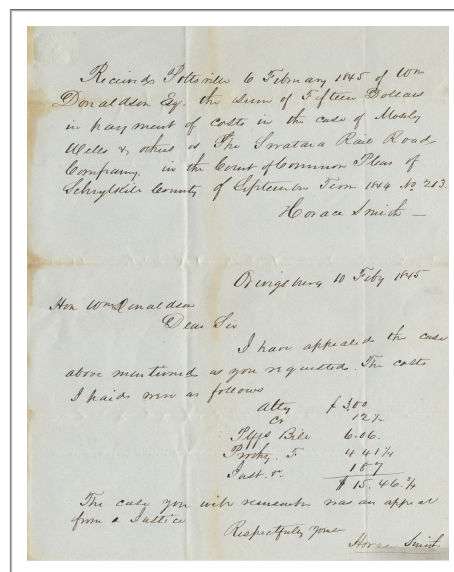 Received Pottsville 6 February 1845 of Wm
Donaldson Esq. the sum of Fifteen Dollars
in payment of costs in the case of Mosely
Wells & others vs The Swatara Rail Road
Company in the Court of Common Pleas of
Schuylkill County of September Term 1844 No 213.
Horace Smith
Orwigsburg 10 Feby 1845
Hon Wm Donaldson
Dear Sir
I have appealed the case
above mentioned as you requested. The costs
I paid were as follows
Atty $ 3.00
Cr 12 1/2
Plffs Bill 6.06.
Prothy. F. 4 41 1/4
Just. 1 87
$ 15.46.3/4
The case you will remember was an appeal
from a Justice
Respectfully yours
Horace Smith